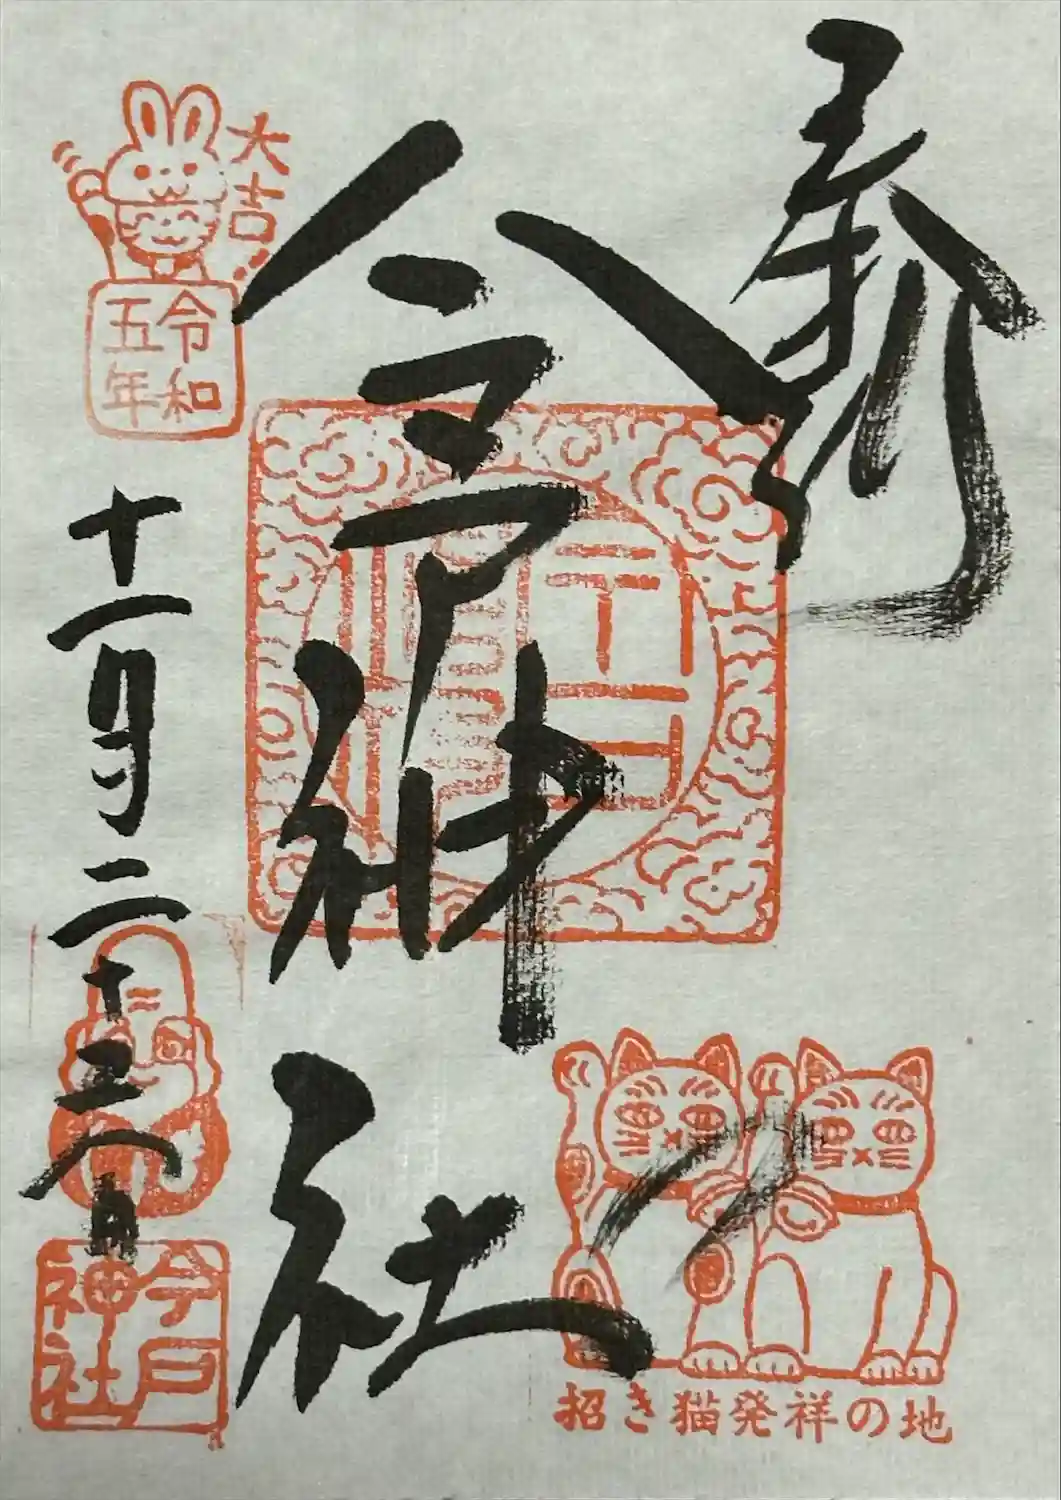 奉拝
今戸神社
大吉
令和
五年
十一月二十三日
今戸
神社
招き猫発祥の地